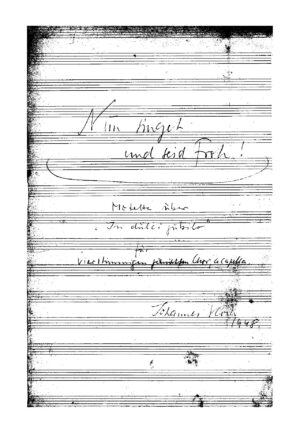 Nun singet
und seid Froh!
Motette über
"In dulci jubilo"
für
vierstimmigen Chor acapella.
Johannes
1948